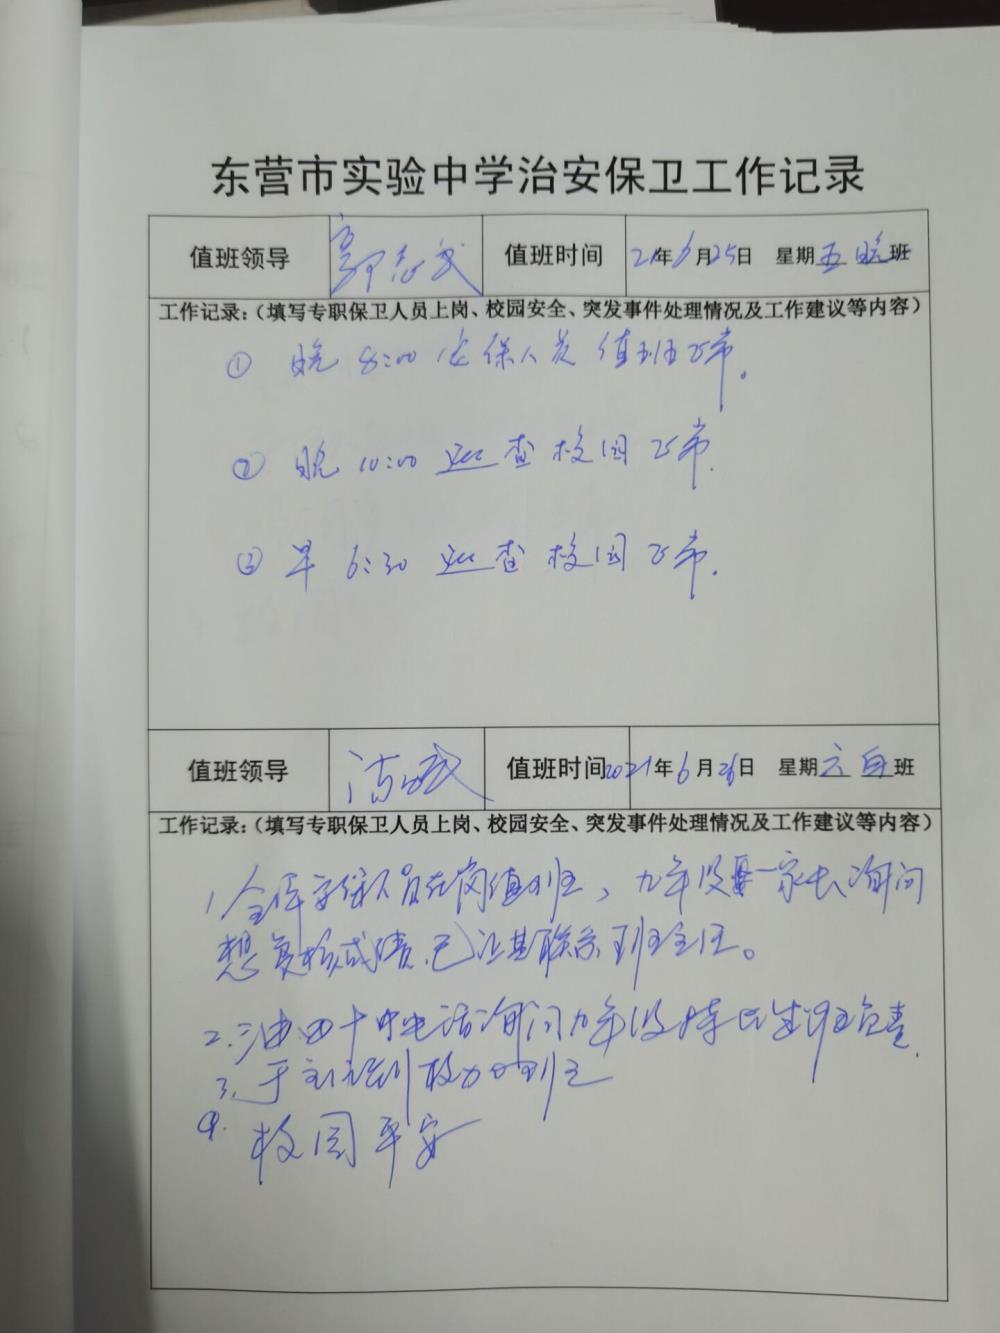 东营市实验中学治安保卫工作记录
值班领导 郭志武 值班时间 21年6月25日 星期五晚班
工作记录:(填写专职保卫人员上岗、校园安全、突发事件处理情况及工作建议等内容)
① 晚 8:00 安保人员值班正常。
② 晚 10:00 巡查校园正常.
③ 早 6:30 巡查校园正常.
值班领导 值班时间 2021年6月26日 星期六白班
工作记录:(填写专职保卫人员上岗、校园安全、突发事件处理情况及工作建议等内容)
1. 全体安保人员在岗值班, 九年级一家长询问
想复核成绩,已让其联系班主任。
2. 电话询问九年级特长生负责.
3. 于主任到校加班
4. 校园平安